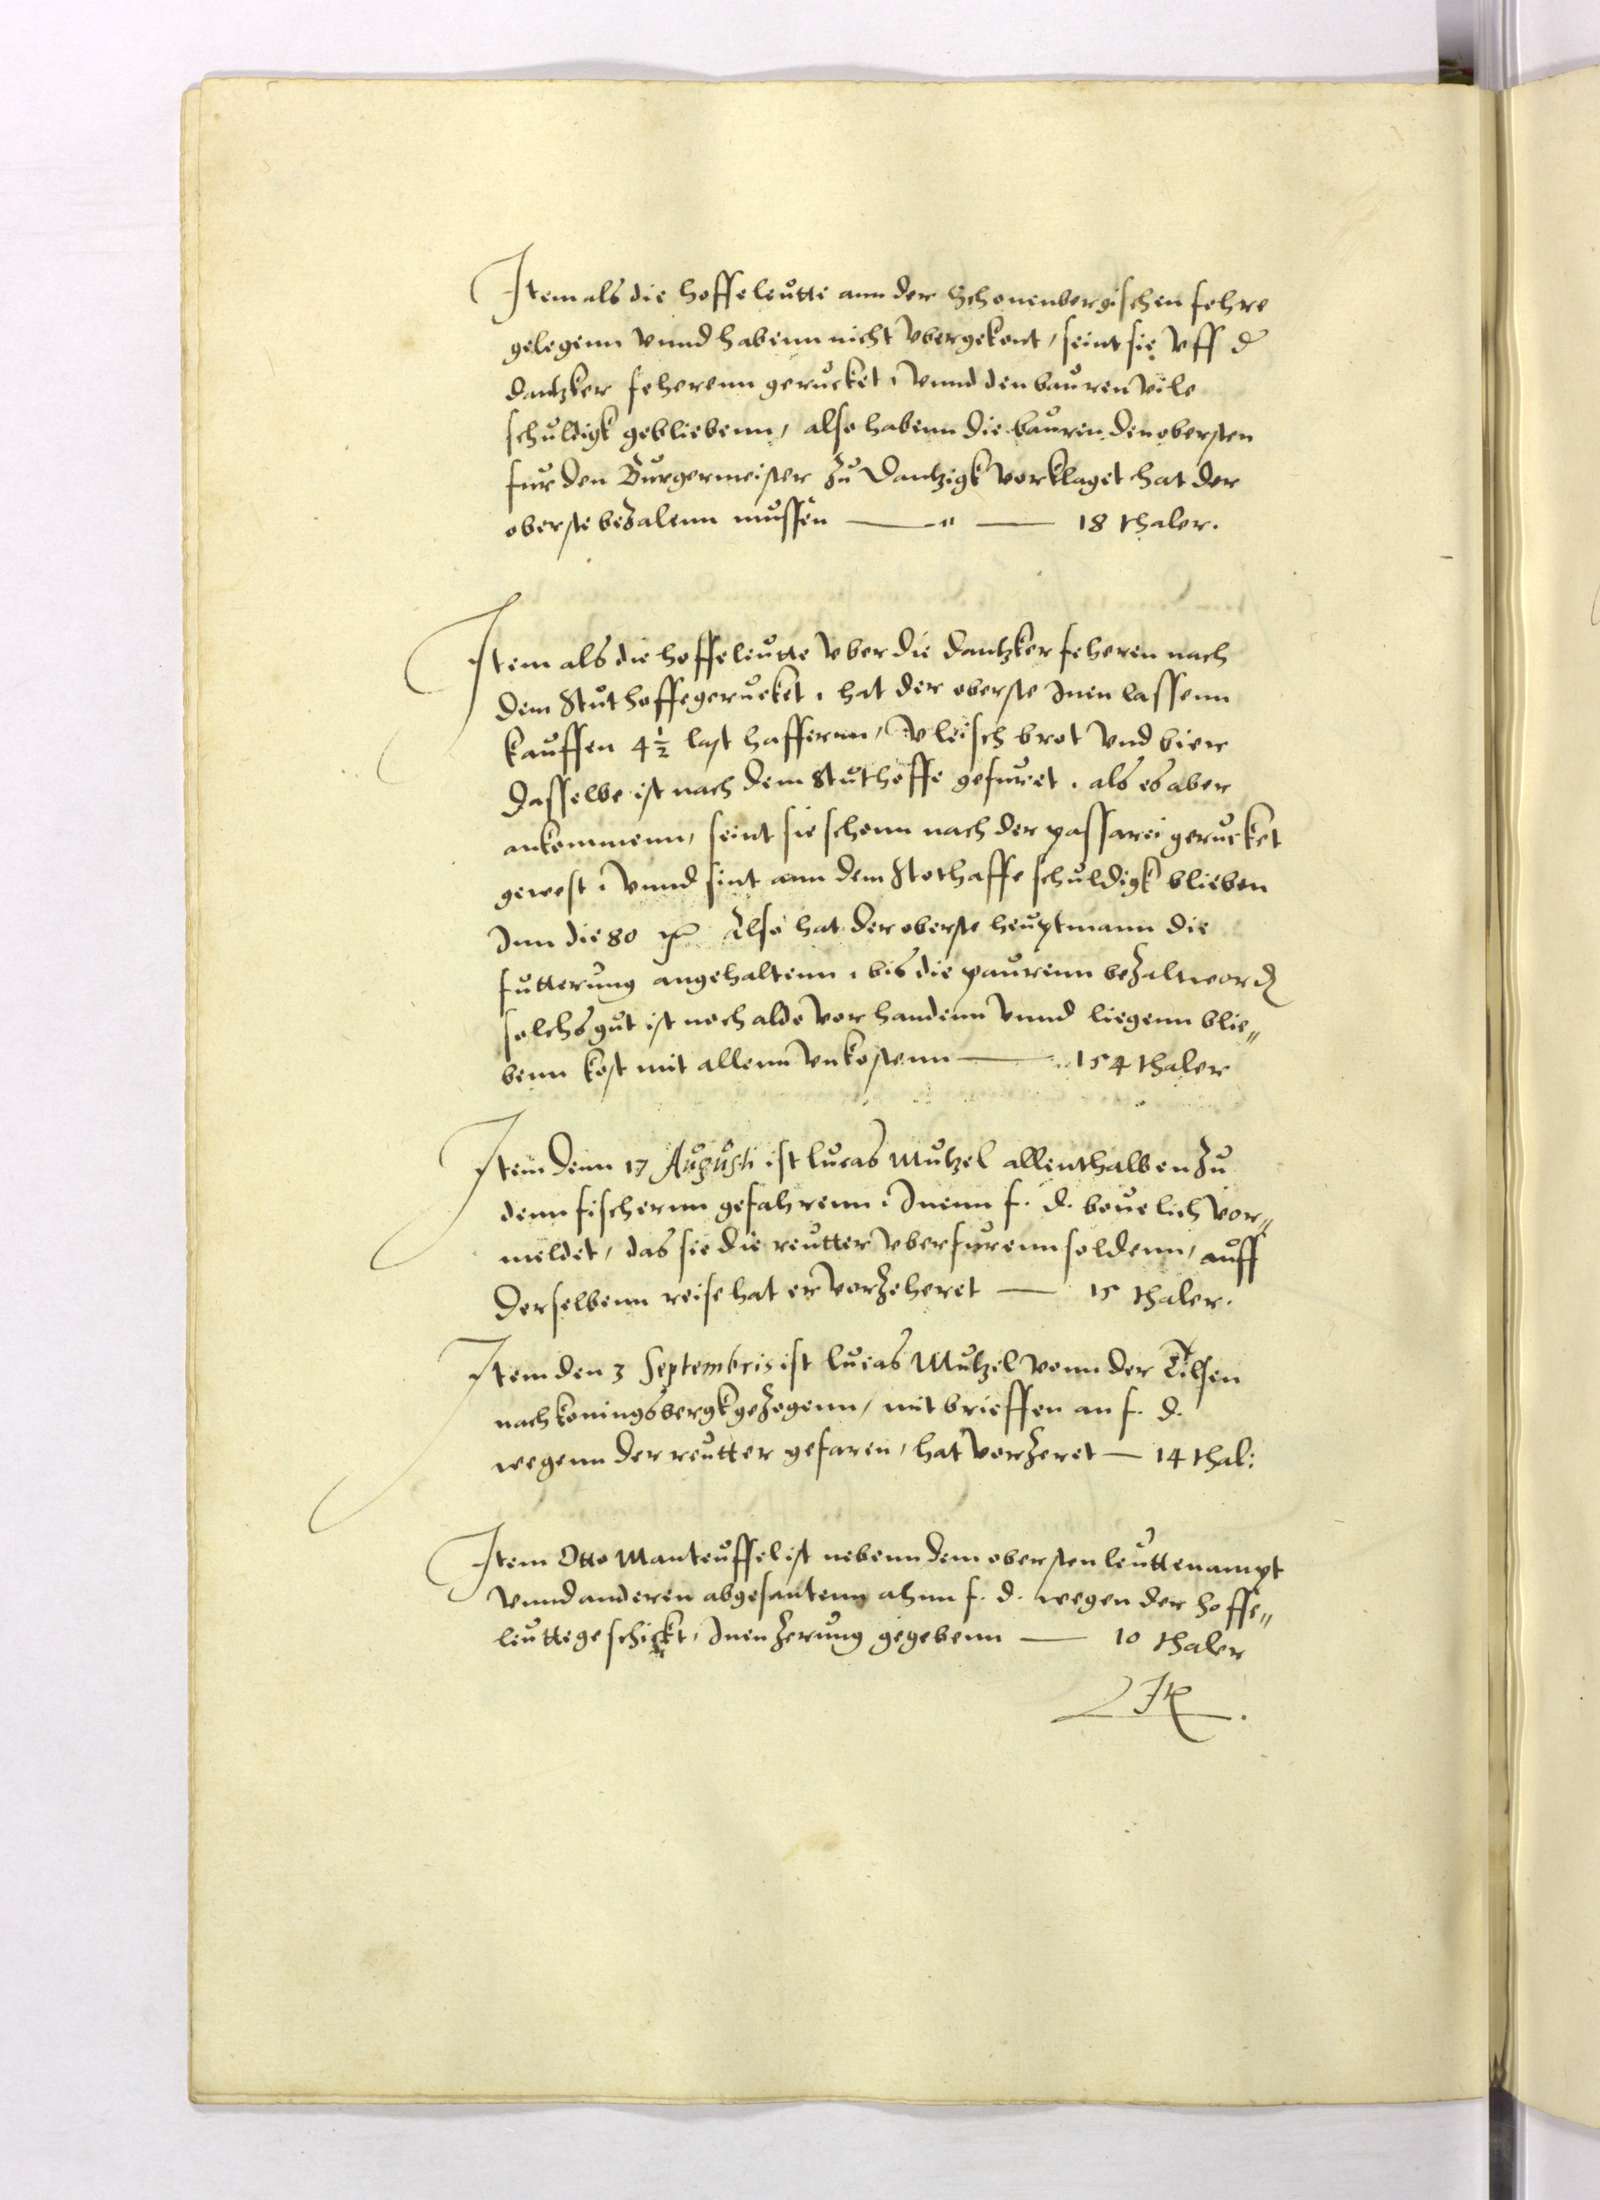 Item als die hoffeleutte ann der Schonenbergischen fehre
gelegenn vnnd habenn nicht vbergekont, seint sie vff d
dantzker feherenn gerucket, vnnd den bauren vile
schuldigk gebliebenn, also habenn die bauren den obersten
fur den Burgermeister zu Dantzigk vorklaget hat der
oberste bezalenn mussen — " — 18 thaler.
Item als die hoffeleutte vber die dantzker feheren nach
dem Stuthoffe gerucket, hat der oberste Inen lassenn
kauffen 4 ½ last haffernn, vleisch brot vnd bier
dasselbe ist nach dem Stuthoffe gefuret. als es aber
ankommenn, seint sie schonn nach der passarei gerucket
gewest, vnnd sint ann dem Stothaffe schuldigk blieben
Inn die 80 Also hat der oberste heuptmann die
futterung angehaltenn, bis die paurenn bezalt word
solchs gut ist noch aldo vorhandenn vnnd liegenn blie„
benn kost mit allenn vnkostenn — 154 thaler
Item denn 17 Augusti ist lucas Mutzel allenthalben zu
denn fischernn gefahrenn, Inenn f. d. beuelich vor„
meldet, das sie die reutter vberfurenn soldenn, auff
derselbenn reise hat er vorzeheret — 15 thaler.
Item den 3 Septembris ist lucas Mutzel vonn der Tilsen
nach koningsbergk gezogenn, mit brieffen an f. d.
wegenn der reutter gefaren, hat vorzeret — 14 thal:
Item Otto Manteuffel ist nebenn dem obersten leuttenampt
vnnd anderen abgesantenn ahnn f. d. wegen der hoffe„
leutte geschickt, Inen zerung gegebenn — 10 thaler